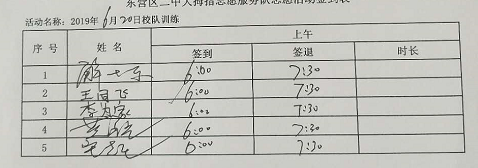 东营区二中大拇指志愿服务队志愿活动签到表
活动名称：2019年6月20日校队训练
序号 姓名 上午
签到 签退 时长
1 6:00 7:30
2 王同飞 6:00 7:30
3 6:00 7:30
4 6:00 7:30
5 6:00 7:30